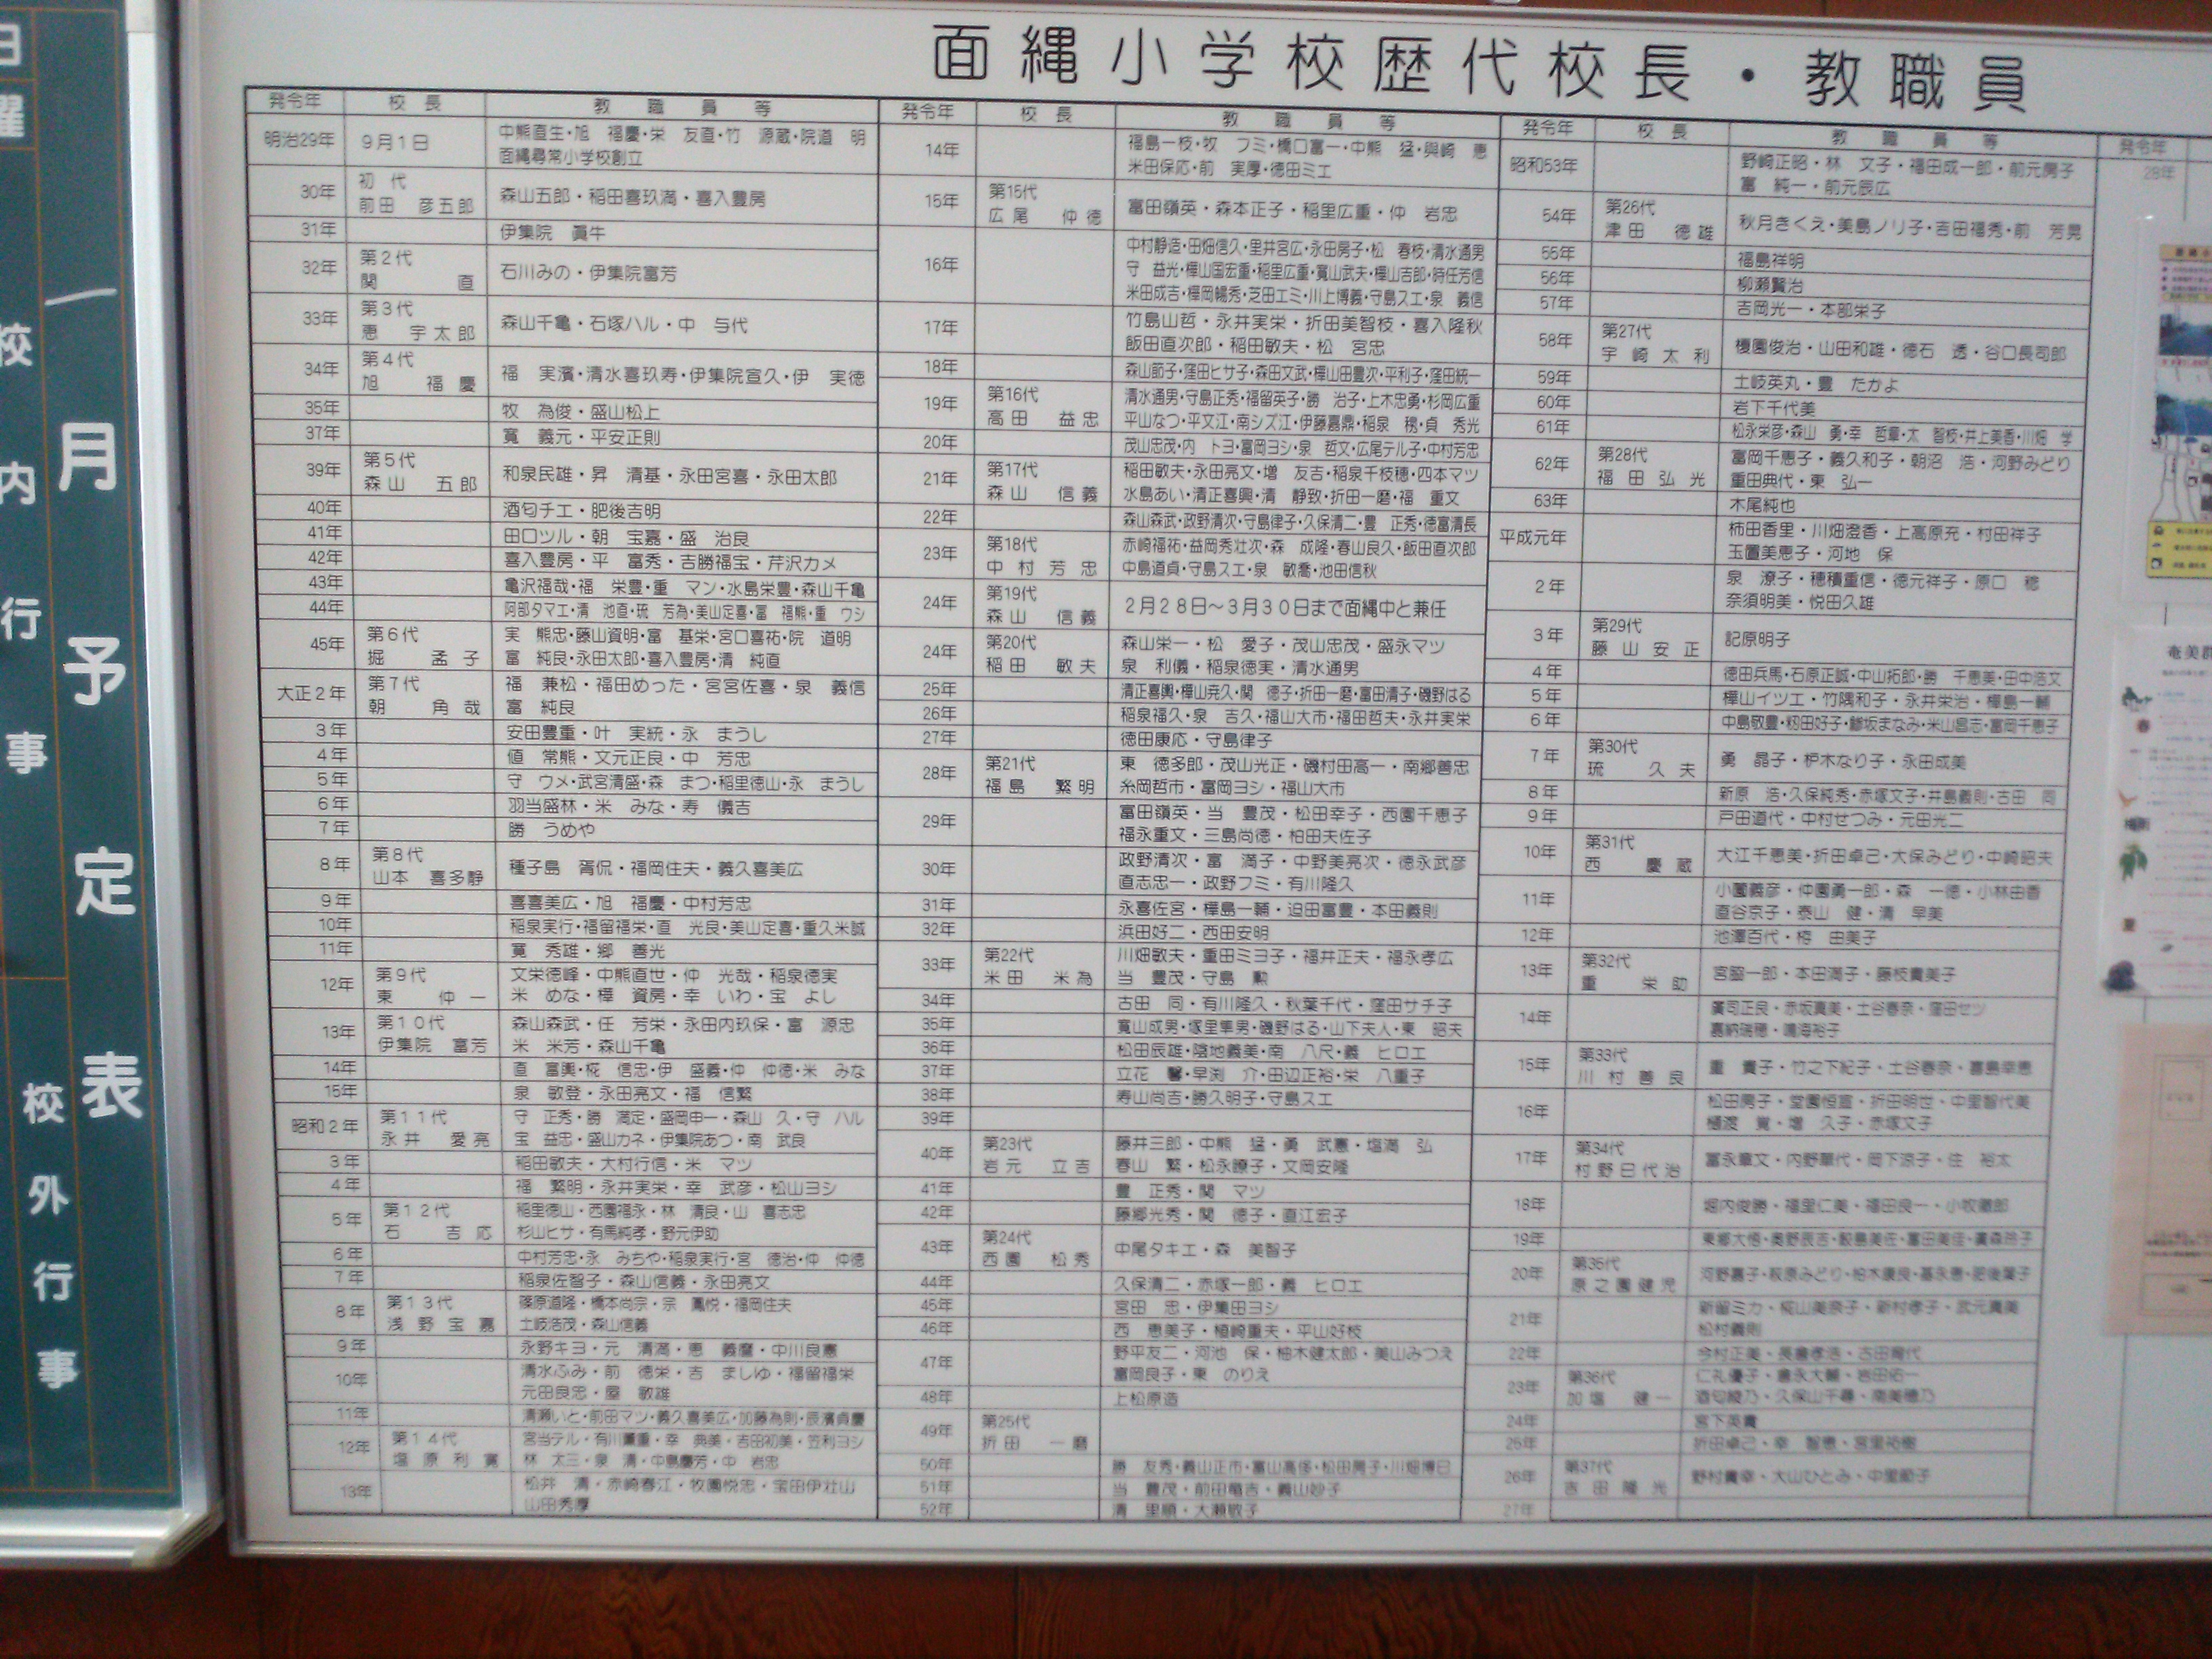 面縄小学校歴代校長・教職員
発令年 校長 教職員等
明治29年 9月1日 中熊直生・旭 福慶・栄 友直・竹 源蔵・院道 明
面縄尋常小学校創立
30年 初代 前田 彦五郎 森山五郎・稲田喜玖満・喜入豊房
31年 伊集院 眞牛
32年 第2代 関 直 石川みの・伊集院富芳
33年 第3代 恵 宇太郎 森山千亀・石塚ハル・中 与代
34年 第4代 旭 福慶 福 実濱・清水喜玖寿・伊集院宣久・伊 実徳
35年 牧 為俊・盛山松上
37年 寛 義元・平安正則
39年 第5代 森山 五郎 和泉民雄・昇 清基・永田宮喜・永田太郎
40年 酒匂チエ・肥後吉明
41年 田口ツル・朝 宝嘉・盛 治良
42年 喜入豊房・平 富秀・吉勝福宝・芹沢カメ
43年 亀沢福哉・福 栄豊・重 マン・水島栄豊・森山千亀
44年 阿部タマエ・清 池直・琉 芳為・美山定喜・富 福熊・重 ウシ
45年 第6代 堀 孟子 実 熊忠・藤山資明・富 基栄・宮口喜祐・院 道明
富 純良・永田太郎・喜入豊房・清 純直
大正2年 第7代 朝 角哉 福 兼松・福田めった・宮宮佐喜・泉 義信
富 純良
3年 安田豊重・叶 実統・永 まうし
4年 値 常熊・文元正良・中 芳忠
5年 守 ウメ・武宮清盛・森 まつ・稲里徳山・永 まうし
6年 羽当盛林・米 みな・寿 儀吉
7年 勝 うめや
8年 第8代 山本 喜多静 種子島 胥侃・福岡住夫・義久喜美広
9年 喜喜美広・旭 福慶・中村芳忠
10年 稲泉実行・福留福栄・直 光良・美山定喜・重久米誠
11年 寛 秀雄・郷 善光
12年 第9代 東 仲一 文栄徳峰・中熊直世・仲 光哉・稲泉徳実
米 めな・樺 資房・幸 いわ・宝 よし
13年 第10代 伊集院 富芳 森山森武・任 芳栄・永田内玖保・富 源忠
米 米芳・森山千亀
14年 直 富興・椛 信忠・伊 盛義・仲 仲徳・米 みな
15年 泉 敏登・永田亮文・福 信繁
昭和2年 第11代 永井 愛亮 守 正秀・勝 満定・盛岡申一・森山 久・守 ハル
宝 益忠・盛山カネ・伊集院あつ・南 武良
3年 稲田敏夫・大村行信・米 マツ
4年 福 繁明・永井実栄・幸 武彦・松山ヨシ
5年 第12代 石 吉応 稲里徳山・西園福永・林 清良・山 喜志忠
杉山ヒサ・有馬純孝・野元伊助
6年 中村芳忠・永 みちや・稲泉実行・宮 徳治・仲 仲徳
7年 稲泉佐智子・森山信義・永田亮文
8年 第13代 浅野宝嘉 篠原道隆・橋本尚宗・宗 鳳悦・福岡住夫
土岐浩茂・森山信義
9年 永野キヨ・元 清満・恵 義麿・中川良憲
10年 清水ふみ・前 徳栄・吉 ましゆ・福留福栄
元田良忠・屋 敏雄
11年 清瀬いと・前田マツ・義久喜美広・加藤為則・辰濱貞慶
12年 第14代 塩原利寛 宮当テル・有川薫重・幸 典美・吉田初美・笠利ヨシ
林 太三・泉 清・中島慶芳・中 岩忠
13年 松井 清・赤崎春江・牧園悦忠・宝田伊壮山
山田秀厚
発令年 校長 教職員等
14年 福島一枝・牧 フミ・橋口富一・中熊 猛・與崎 恵
米田保応・前 実厚・徳田ミエ
15年 第15代 広尾 仲徳 富田嶺英・森本正子・稲里広重・仲 岩忠
16年 中村静造・田畑信久・里井宮広・永田房子・松 春枝・清水通男
守 益光・樺山国宏重・稲里広重・寛山武夫・樺山吉郎・時任芳信
米田成吉・樺岡暢秀・芝田エミ・川上博義・守島スエ・泉 義信
17年 竹島山哲・永井実栄・折田美智枝・喜入隆秋
飯田直次郎・稲田敏夫・松 宮忠
18年 森山節子・窪田ヒサ子・森田文武・樺山田豊次・平利子・窪田統一
19年 第16代 高田 益忠 清水通男・守島正秀・福留英子・勝 治子・上木忠勇・杉岡広重
平山なつ・平文江・南シズ江・伊藤嘉鼎・稲泉 穂・貞 秀光
20年 茂山忠茂・内 トヨ・富岡ヨシ・泉 哲文・広尾テル子・中村芳忠
21年 第17代 森山 信義 稲田敏夫・永田亮文・増 友吉・稲泉千枝穂・四本マツ
水島あい・清正喜興・清 静致・折田一磨・福 重文
22年 森山森武・政野清次・守島律子・久保清二・豊 正秀・徳富清長
23年 第18代 中村芳忠 赤崎福祐・益岡秀壮次・森 成隆・春山良久・飯田直次郎
中島道貞・守島スエ・泉 敏喬・池田信秋
24年 第19代 森山 信義 2月28日～3月30日まで面縄中と兼任
24年 第20代 稲田 敏夫 森山栄一・松 愛子・茂山忠茂・盛永マツ
泉 利儀・稲泉徳実・清水通男
25年 清正喜興・樺山尭久・関 徳子・折田一磨・富田清子・磯野はる
26年 稲泉福久・泉 吉久・福山大市・福田哲夫・永井実栄
27年 徳田康応・守島律子
28年 第21代 福島 繁明 東 徳多郎・茂山光正・磯村田高一・南郷善忠
糸岡哲市・富岡ヨシ・福山大市
29年 富田嶺英・当 豊茂・松田幸子・西園千恵子
福永重文・三島尚徳・柏田夫佐子
30年 政野清次・富 満子・中野美亮次・徳永武彦
直志忠一・政野フミ・有川隆久
31年 永喜佐宮・樺島一輔・迫田富豊・本田義則
32年 浜田好二・西田安明
33年 第22代 米田 米為 川畑敏夫・重田ミヨ子・福井正夫・福永孝広
当 豊茂・守島 勲
34年 古田 同・有川隆久・秋葉千代・窪田サチ子
35年 寛山成男・塚里隼男・磯野はる・山下夫人・東 昭夫
36年 松田辰雄・陰地義美・南 八尺・義 ヒロエ
37年 立花 馨・早渕 介・田辺正裕・栄 八重子
38年 寿山尚吉・勝久明子・守島スエ
39年
40年 第23代 岩元 立吉 藤井三郎・中熊 猛・勇 武憲・塩満 弘
春山 繁・松永瞭子・文岡安隆
41年 豊 正秀・関 マツ
42年 藤郷光秀・関 徳子・直江宏子
43年 第24代 西園 松秀 中尾タキエ・森 美智子
44年 久保清二・赤塚一郎・義 ヒロエ
45年 宮田 忠・伊集田ヨシ
46年 西 恵美子・植崎重夫・平山好枝
47年 野平友二・河池 保・柚木健太郎・美山みつえ
富岡良子・東 のりえ
48年 上松原造
49年 第25代 折田 一磨
50年 勝 友秀・義山正市・富山高侈・松田房子・川畑博日
51年 当 豊茂・前田竜吉・義山妙子
52年 清 里順・大瀬敏子
発令年 校長 教職員等
昭和53年 野崎正昭・林 文子・福田成一郎・前元房子
富 純一・前元辰広
54年 第26代 津田 徳雄 秋月きくえ・美島ノリ子・吉田福秀・前 芳晃
55年 福島祥明
56年 柳瀬賢治
57年 吉岡光一・本部栄子
58年 第27代 宇崎太利 榎園俊治・山田和雄・徳石 透・谷口長司郎
59年 土岐英丸・豊 たかよ
60年 岩下千代美
61年 松永栄彦・森山 勇・幸 哲章・太 智枝・井上美香・川畑 学
62年 第28代 福田弘光 富岡千恵子・義久和子・朝沼 浩・河野みどり
重田典代・東 弘一
63年 木尾純也
平成元年 柿田香里・川畑澄香・上高原充・村田祥子
玉置美恵子・河地 保
2年 泉 潦子・穂積重信・徳元祥子・原口 穂
奈須明美・悦田久雄
3年 第29代 藤山安正 記原明子
4年 徳田兵馬・石原正誠・中山拓郎・勝 千恵美・田中浩文
5年 樺山イツエ・竹隅和子・永井栄治・樺島一輔
6年 中島敬豊・籾田好子・鯵坂まなみ・米山昌志・富岡千恵子
7年 第30代 琉 久夫 勇 晶子・枦木なり子・永田成美
8年 新原 浩・久保純秀・赤塚文子・井島義則・古田 同
9年 戸田道代・中村せつみ・元田光二
10年 第31代 西 慶蔵 大江千恵美・折田卓己・大保みどり・中崎紹夫
11年 小園義彦・仲園勇一郎・森 一徳・小林由香
直谷京子・泰山 健・清 早美
12年 池澤百代・椅 由美子
13年 第32代 重 栄助 宮脇一郎・本田満子・藤枝貴美子
14年 廣司正良・赤坂真美・土谷春奈・窪田セツ
嘉納瑞穂・鳴海裕子
15年 第33代 川村善良 重 貴子・竹之下紀子・土谷春奈・喜島幸恵
16年 松田房子・堂園恒宣・折田明世・中里智代美
樋渡 寛・増 久子・赤塚文子
17年 第34代 村野日代治 冨永章文・内野華代・岡下涼子・住 裕太
18年 堀内俊勝・福里仁美・福田良一・小牧徹郎
19年 東郷大悟・奥野辰吉・鮫島美佐・富田美佳・廣森玲子
20年 第35代 原之園健児 河野嘉子・萩原みどり・柏木康良・基永恵・肥後葉子
21年 新留ミカ・椛山美奈子・新村孝子・武元真美
松村義則
22年 今村正美・長倉孝浩・古田育代
23年 第36代 加塩 健一 仁礼優子・富永大輔・岩田佑一
酒匂綾乃・久保山千尋・南美穂乃
24年 宮下英貴
25年 折田卓己・幸 智恵・宮里裕樹
26年 第37代 吉田隆光 野村貴幸・大山ひとみ・中里節子
27年
発令年
28年
日
曜
校内行事
校外行事
月予定表
奄美群